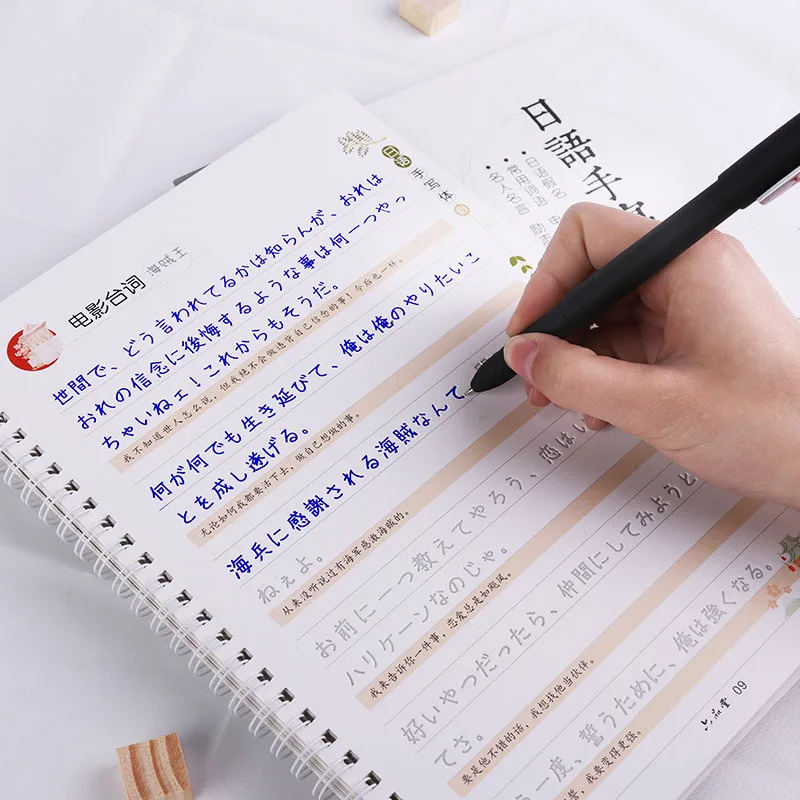 日语
手写体
电影台词 海贼王
世間で、どう言われてるかは知らんが、おれは
おれの信念に後悔するような事は何一つやっ
ちゃいねェ！これからもそうだ。
我不知道世人怎么说，但我绝不会做违背自己信念的事！今后也一样。
何が何でも生き延びて、俺は俺のやりたいこ
とを成し遂げる。
无论如何我都要活下去，做自己想做的事。
海兵に感謝される海賊なんて
ねぇよ。
从来没听说过有海军感激海贼的。
お前に一つ教えてやろう、恋はい
ハリケーンなのじゃ。
我来告诉你一件事，恋爱总是如飓风。
好いやつだったら、仲間にしてみようと
てさ。
要是他不错的话，我想找他当伙伴。
一度、誓うために、俺は強くなる。
我要变得更强。
六品堂 09
日語手
日语假名
常用词语
名人名言
励志